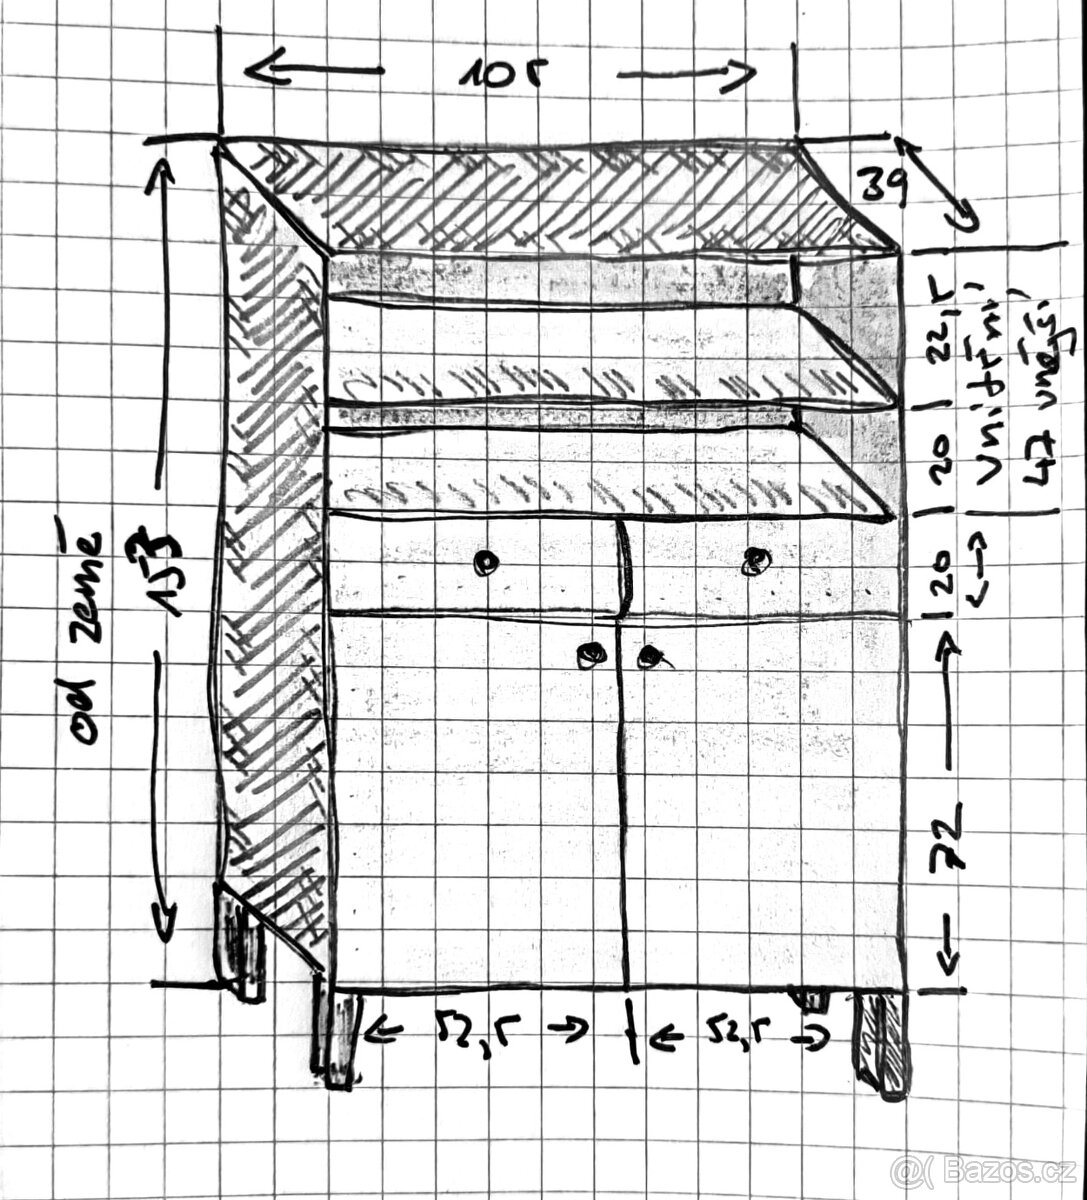 105
39
22,5
20
vnitřní
47 vnější
20
od země
153
72
52,5
52,5
@( Bazos.cz